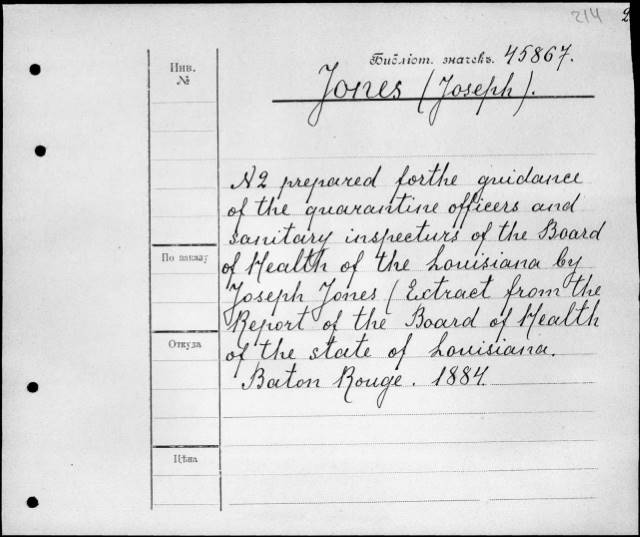 214 2
Инв.
№
Библіот. значекъ. 45867.
Jones (Joseph).
N2 prepared forthe guidance
of the quarantine officers and
sanitary inspecturs of the Board
of Health of the Louisiana by
Joseph Jones (Extract from the
Report of the Board of Health
of the state of Louisiana.
Baton Rouge. 1884.
По заказу
Откуда
Цѣна